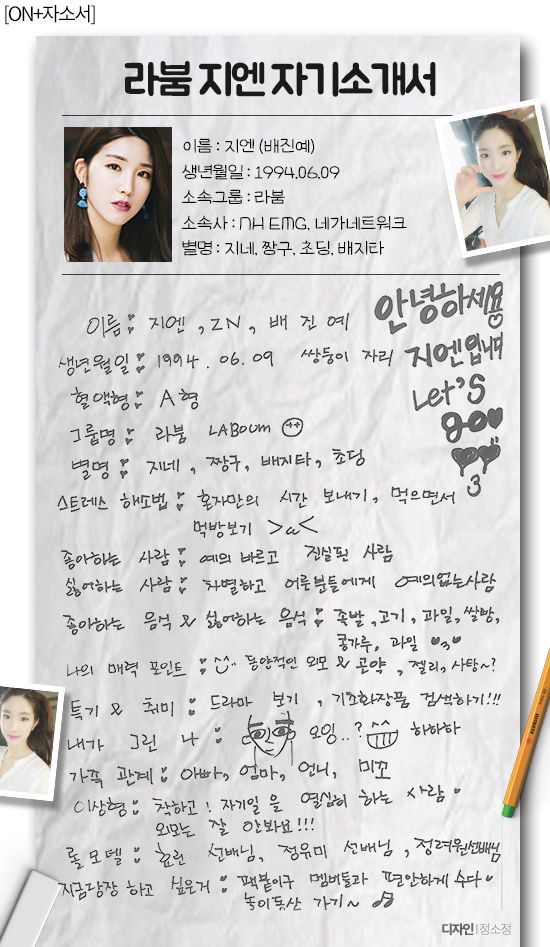 [ON+자소서]
라붐 지엔 자기소개서
이름 : 지엔 (배진예)
생년월일 : 1994.06.09
소속그룹 : 라붐
소속사 : NH EMG, 네가네트워크
별명 : 지네, 짱구, 초딩, 배지타
안녕하세용
지엔입니다
Let's
go
이름 : 지엔, ZN, 배진예
생년월일 : 1994. 06. 09 쌍둥이 자리
혈액형 : A형
그룹명 : 라붐 LABOUM
별명 : 지네, 짱구, 배지타, 초딩
스트레스 해소법 : 혼자만의 시간 보내기, 먹으면서
먹방보기 >a<
좋아하는 사람 : 예의 바르고 진실된 사람
싫어하는 사람 : 차별하고 어른분들에게 예의없는사람
좋아하는 음식 & 싫어하는 음식 : 족발, 고기, 과일, 쌀빵,
콩가루, 과일
나의 매력 포인트 : 동양적인 외모 & 곤약, 젤리, 사탕~?
특기 & 취미 : 드라마 보기, 기초화장품 검색하기!!!
내가 그린 나 : 오잉..? 하하하
가족 관계 : 아빠, 엄마, 언니, 미쪼
이상형 : 착하고! 자기일을 열심히 하는 사람
외모는 잘 안봐요!!!
롤모델 : 효린 선배님, 정유미 선배님, 정려원선배님
지금당장 하고 싶은거 : 떡볶이구 멤버들과 편안하게 수다
놀이동산 가기~
디자인 | 정소정